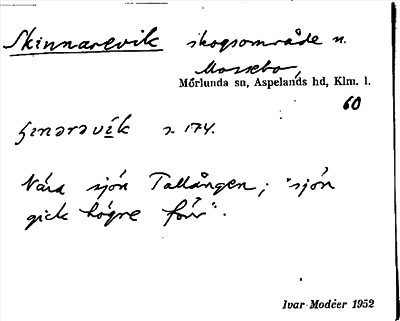 Skinnarevik skogsområde n.
Mossebo
Mörlunda sn, Aspelands hd, Klm. l.
60
ʂinərəvík s. 174.
Nära sjön Tallången; "sjön
gick högre förr".
Ivar Modéer 1952